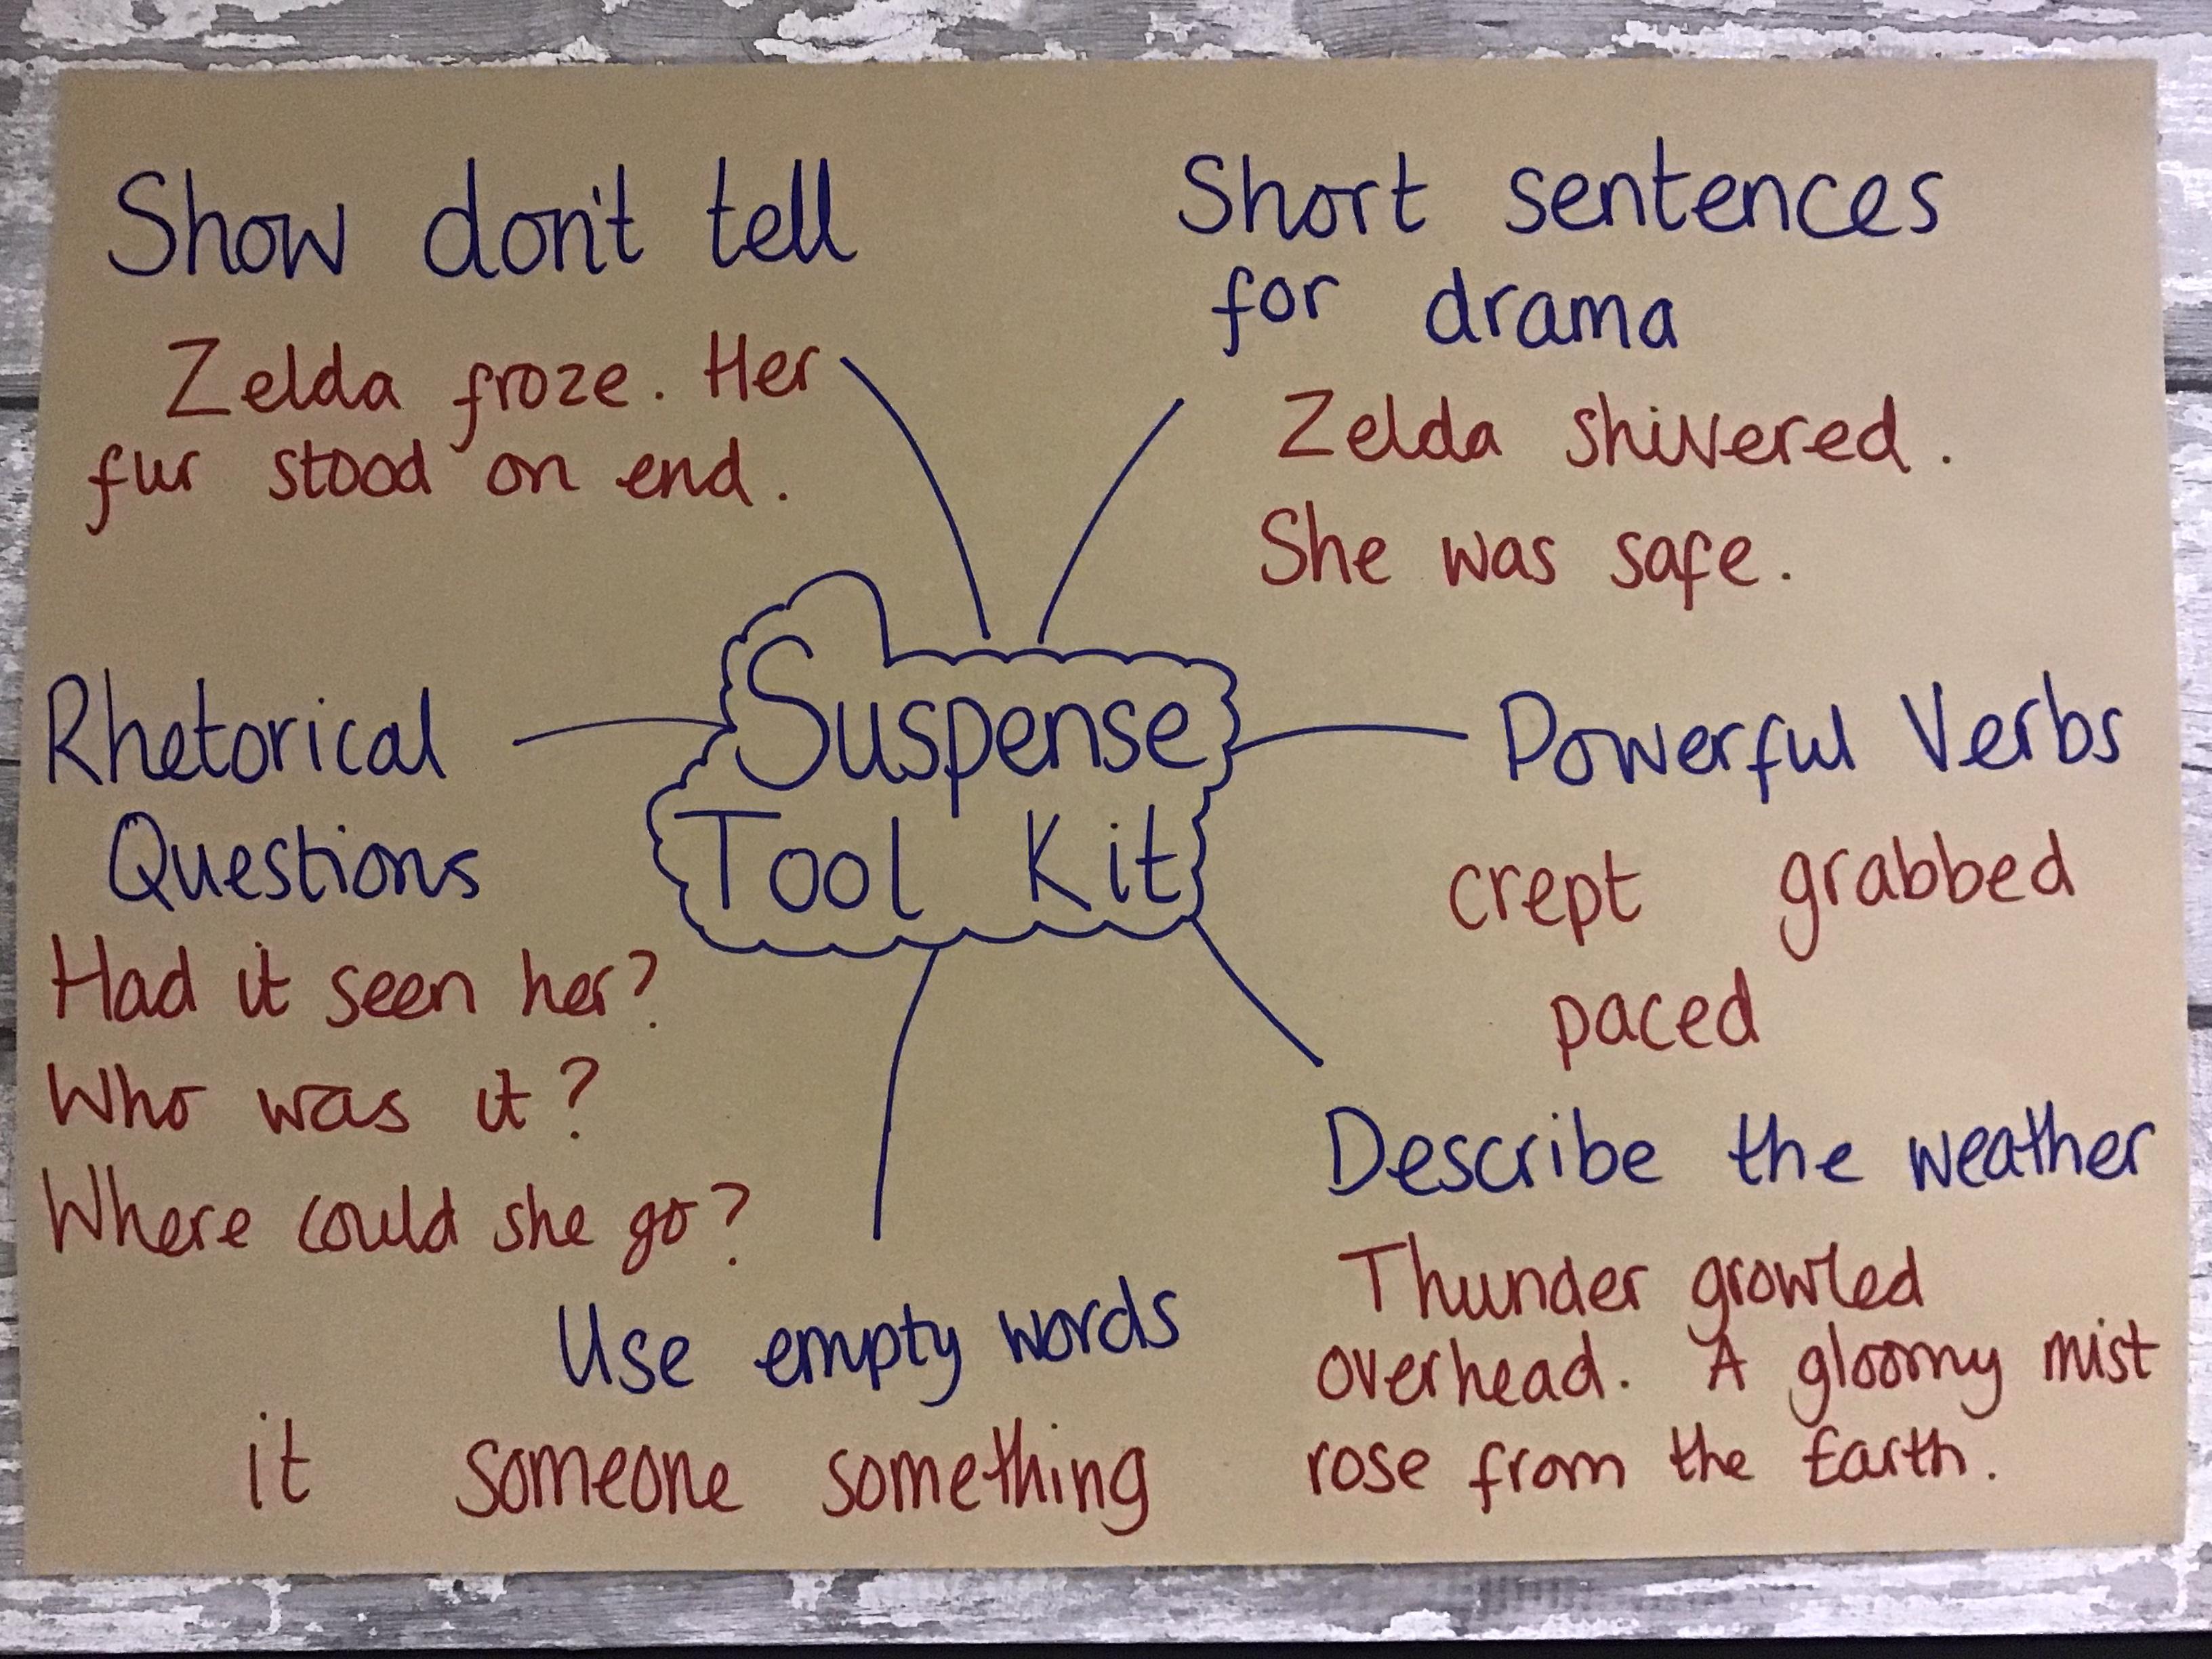 Show don't tell
Zelda froze. Her
fur stood on end.
Short sentences
for drama
Zelda shivered.
She was safe.
Suspense
Tool Kit
Rhetorical
Questions
Had it seen her?
Who was it?
Where could she go?
Powerful Verbs
crept grabbed
paced
Use empty words
it someone something
Describe the weather
Thunder growled
overhead. A gloomy mist
rose from the Earth.